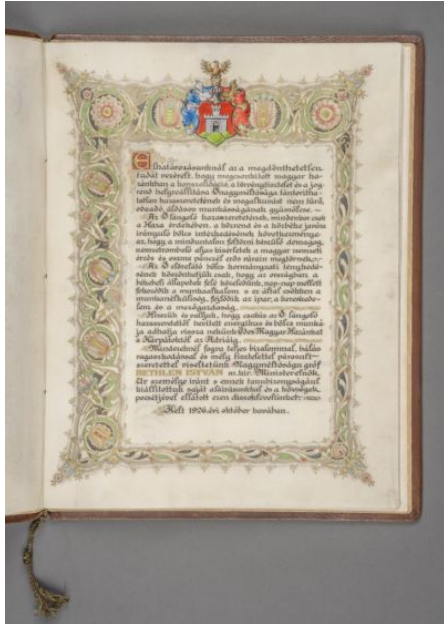 Elhatározásunknál az a megdönthetetlen
tudat vezérelt, hogy megcsonkított magyar ha-
zánkban a konszolidáció, a törvénytisztelet és a jog-
rend helyreállítása Önagyméltósága tántorítha-
tatlan hazaszeretetének és megalkuvást nem tűrő,
odaadó, áldásos munkásságának gyümölcse. –
Az Ő lángoló hazaszeretetének, mindenkor csak
a Haza érdekében, a közrend és a közbéke javára
irányuló bölcs intézkedésének következménye
az, hogy a minduntalan feltörni készülő demagog,
nemzetromboló aljas kisérletek a magyar nemzeti
érzés és eszme páncél erős várain megtörnek. –
Az Ő előrelátó bölcs kormányzati ténykedé-
sének köszönhetjük csak, hogy az országban a
békebeli állapotok felé közeledünk, nap-nap mellett
fokozódik a munkaalkalom s ez által csökken a
munkanélküliség, fejlődik az ipar, a kereskede-
lem és a mezőgazdaság.
Hisszük és valljuk, hogy csakis az Ő lángoló
hazaszeretettől hevített energikus és bölcs munká-
ja adhatja vissza nekünk Édes Magyar Hazánkat
a Kárpátoktól az Adriáig.
Mindezeknél fogva teljes bizalommal, hálás
ragaszkodással és mély tisztelettel párosult
szeretettel viseltetünk Nagyméltóságu gróf
BETHLEN ISTVÁN m. kir. Ministerelnök
Úr személye iránt s ennek tanubizonyságául
kiállítottuk saját aláírásunkkal és a községek
pecsétjével ellátott ezen díszoklevelünket.
Kelt 1926. évi október havában.